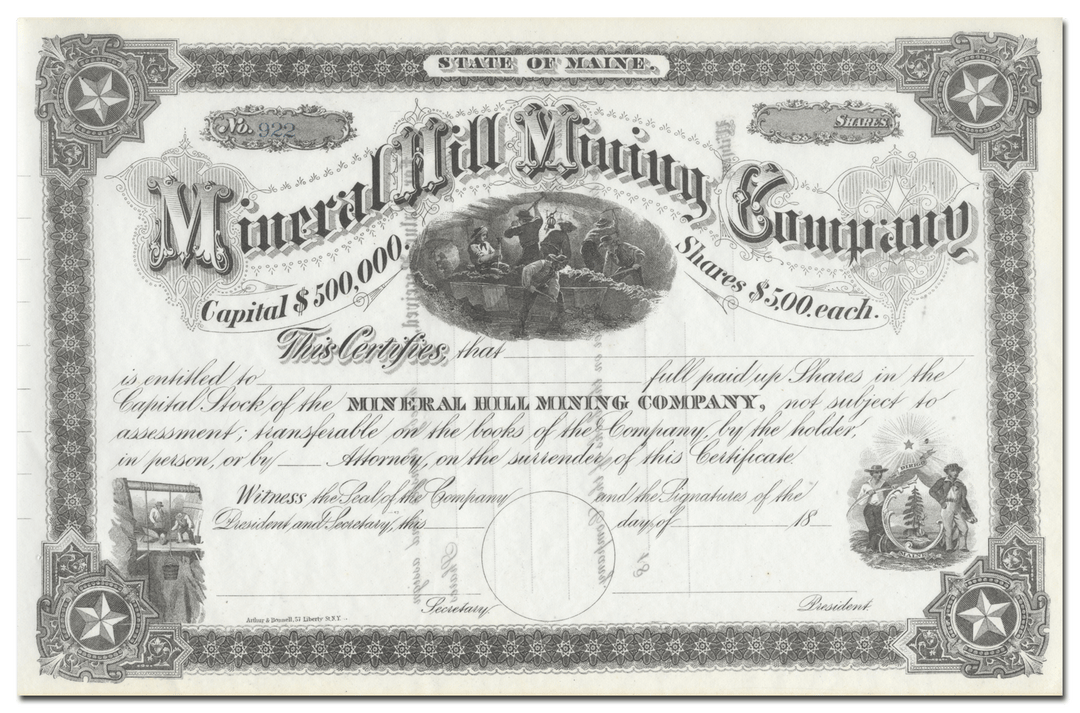 STATE OF MAINE.
No. 922
SHARES.
Mineral Hill Mining Company
Capital $500,000.
Shares $5,00. each.
This Certifies, that
is entitled to full paid up Shares in the
Capital Stock of the MINERAL HILL MINING COMPANY, not subject to
assessment; transferable on the books of the Company, by the holder,
in person, or by Attorney, on the surrender of this Certificate.
Witness the Seal of the Company and the Signatures of the
President and Secretary, this day of 18
DIRIGO
MAINE
Secretary
President
Arthur & Bonnell, 51 Liberty St. N.Y.